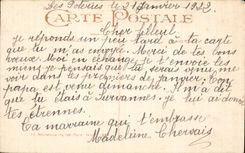 Les Poteries le 21 Janvier 1923
CARTE POSTALE
Cher filleul
Je réponds un peu tard à ta carte
que tu m'as envoyé. Merci de tes bons
voeux. Moi en échange je t'envoie les
miens je pensais que tu serais venu me
voir dans les premiers de janvier. Ton
papa est venu dimanche. Il m'a dit
que tu étais à Servannes. Je lui ai donné
tes étrennes.
Ta marraine qui t'embrasse
Madeleine Chervais